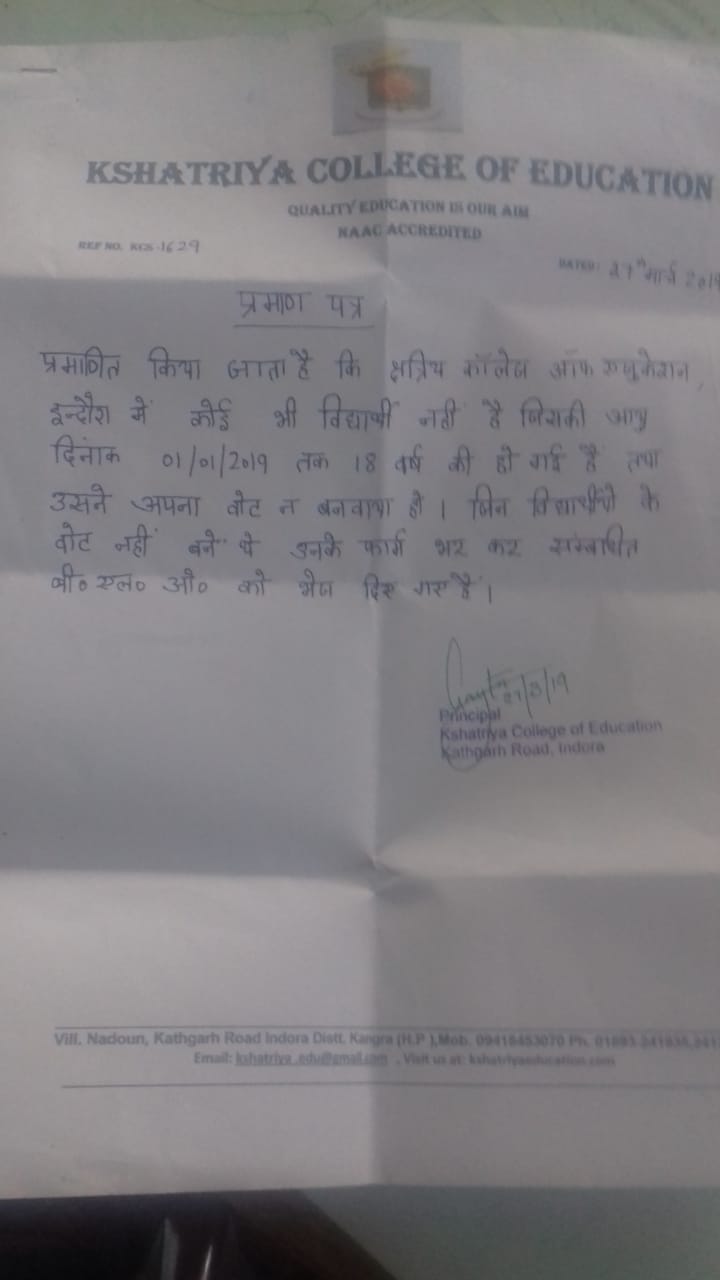 KSHATRIYA COLLEGE OF EDUCATION
QUALITY EDUCATION IS OUR AIM
NAAC ACCREDITED
REF NO. KCS-1629
DATED: 27th मार्च 2019
प्रमाण पत्र
प्रमाणित किया जाता है कि क्षत्रिय कॉलेज ऑफ एजुकेशन,
इन्दौरा में कोई भी विद्यार्थी नहीं है जिसकी आयु
दिनांक 01/01/2019 तक 18 वर्ष की हो गई है तथा
उसने अपना वोट न बनवाया हो। जिन विद्यार्थीयों के
वोट नहीं बने थे उनके फार्म भर कर सम्बन्धित
बी० एल० ओ० को भेज दिए गए हैं।
27/3/19
Principal
Kshatriya College of Education
Kathgarh Road, Indora
Vill. Nadoun, Kathgarh Road Indora Distt. Kangra (H.P ),Mob. 09418453070 Ph.
Email: kshatriya_edu@gmail.com , Visit us at: kshatriyaeducation.com